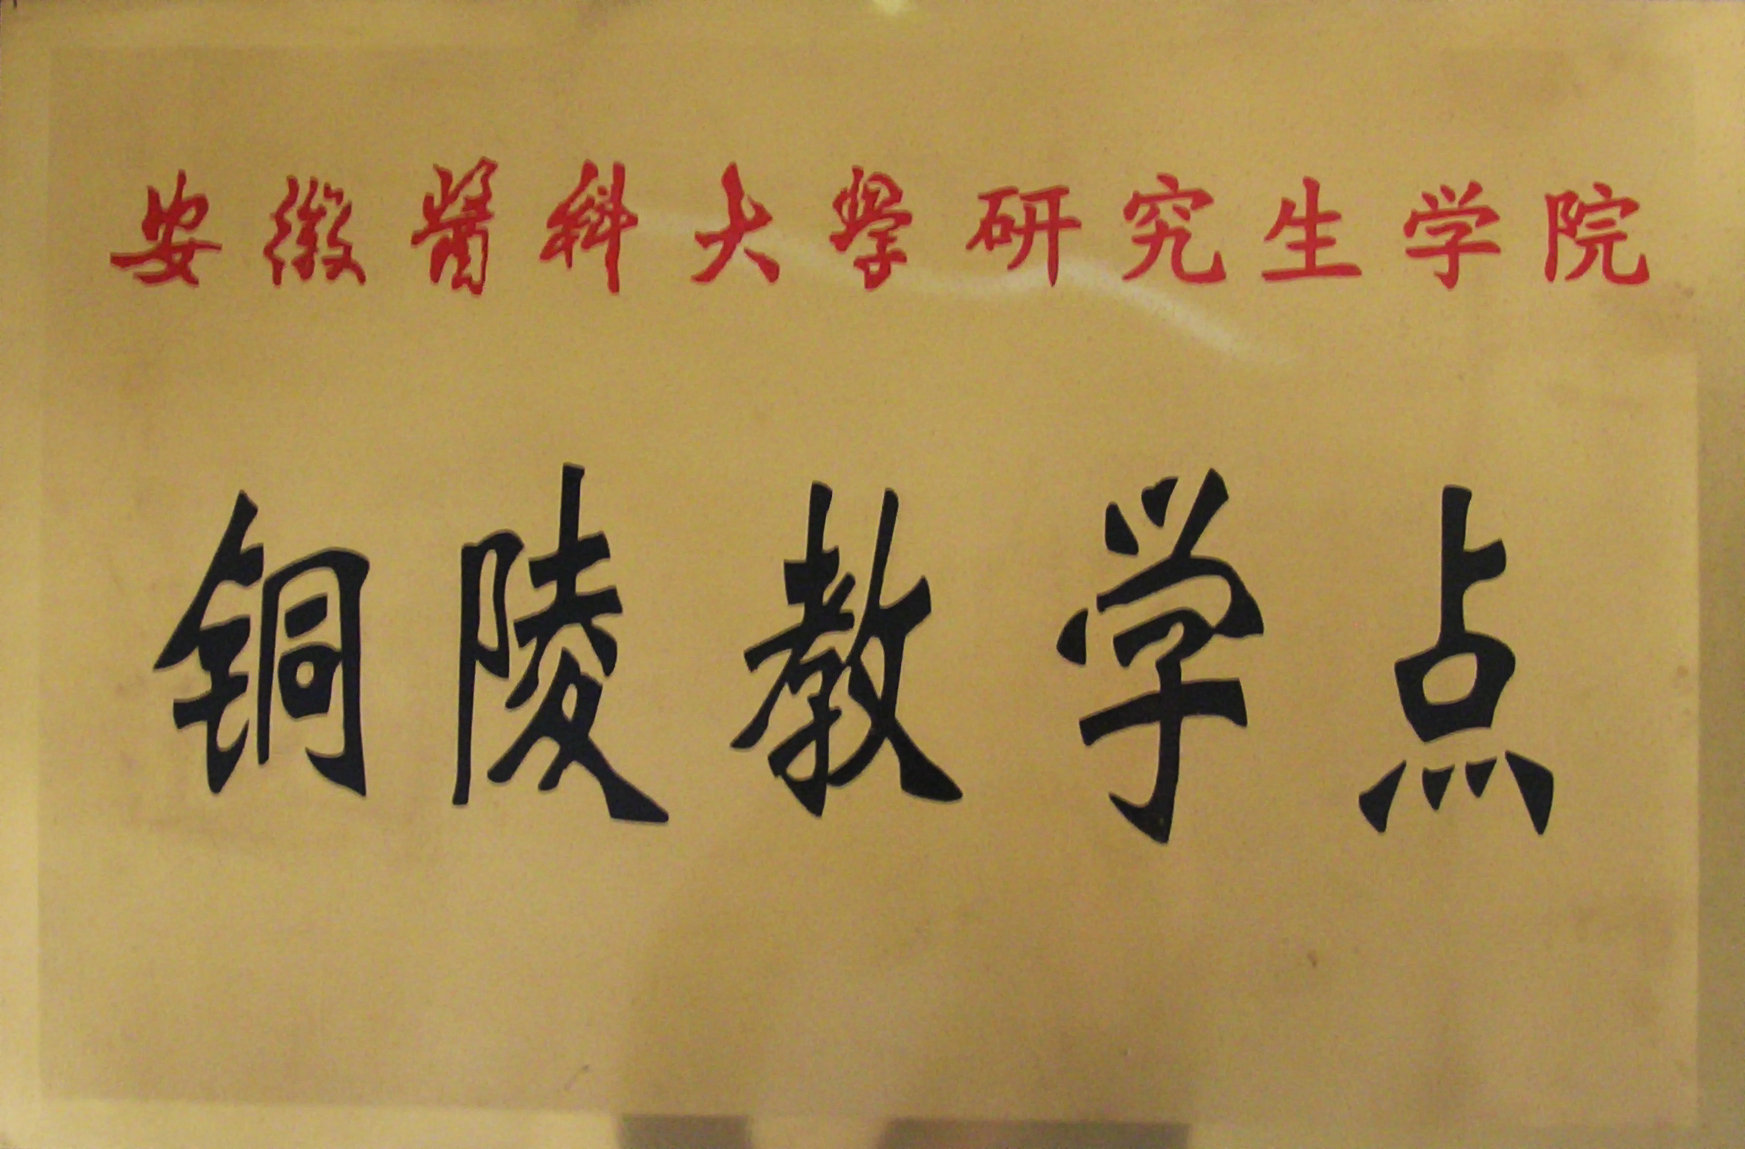 安徽醫科大學研究生学院
铜陵教学点